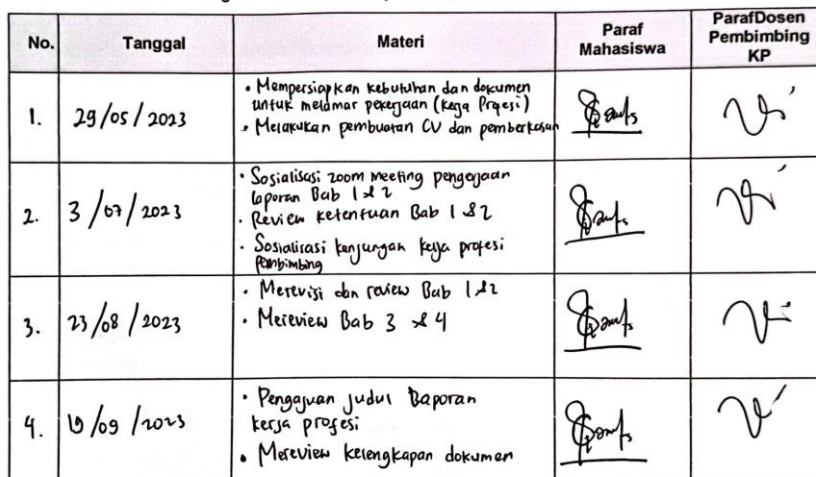 No. Tanggal Materi Paraf Mahasiswa ParafDosen Pembimbing KP
1. 29/05/2023
• Mempersiapkan kebutuhan dan dokumen
untuk melamar pekerjaan (Kerja Profesi)
• Melakukan pembuatan CV dan pemberkasan
2. 3/07/2023
• Sosialisasi zoom meeting pengerjaan
laporan Bab 1 & 2
• Review ketentuan Bab 1 & 2
• Sosialisasi kunjungan kerja profesi
pembimbing
3. 23/08/2023
• Merevisi dan review Bab 1 & 2
• Mereview Bab 3 & 4
4. /09/2023
• Pengajuan judul Laporan
kerja profesi
• Mereview kelengkapan dokumen